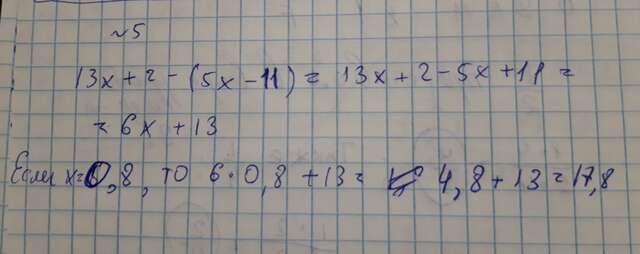 №5
13x + 2 - (5x - 11) = 13x + 2 - 5x + 11 =
= 6x + 13
Если x = 0,8, то 6 · 0,8 + 13 = 4,8 + 13 = 17,8